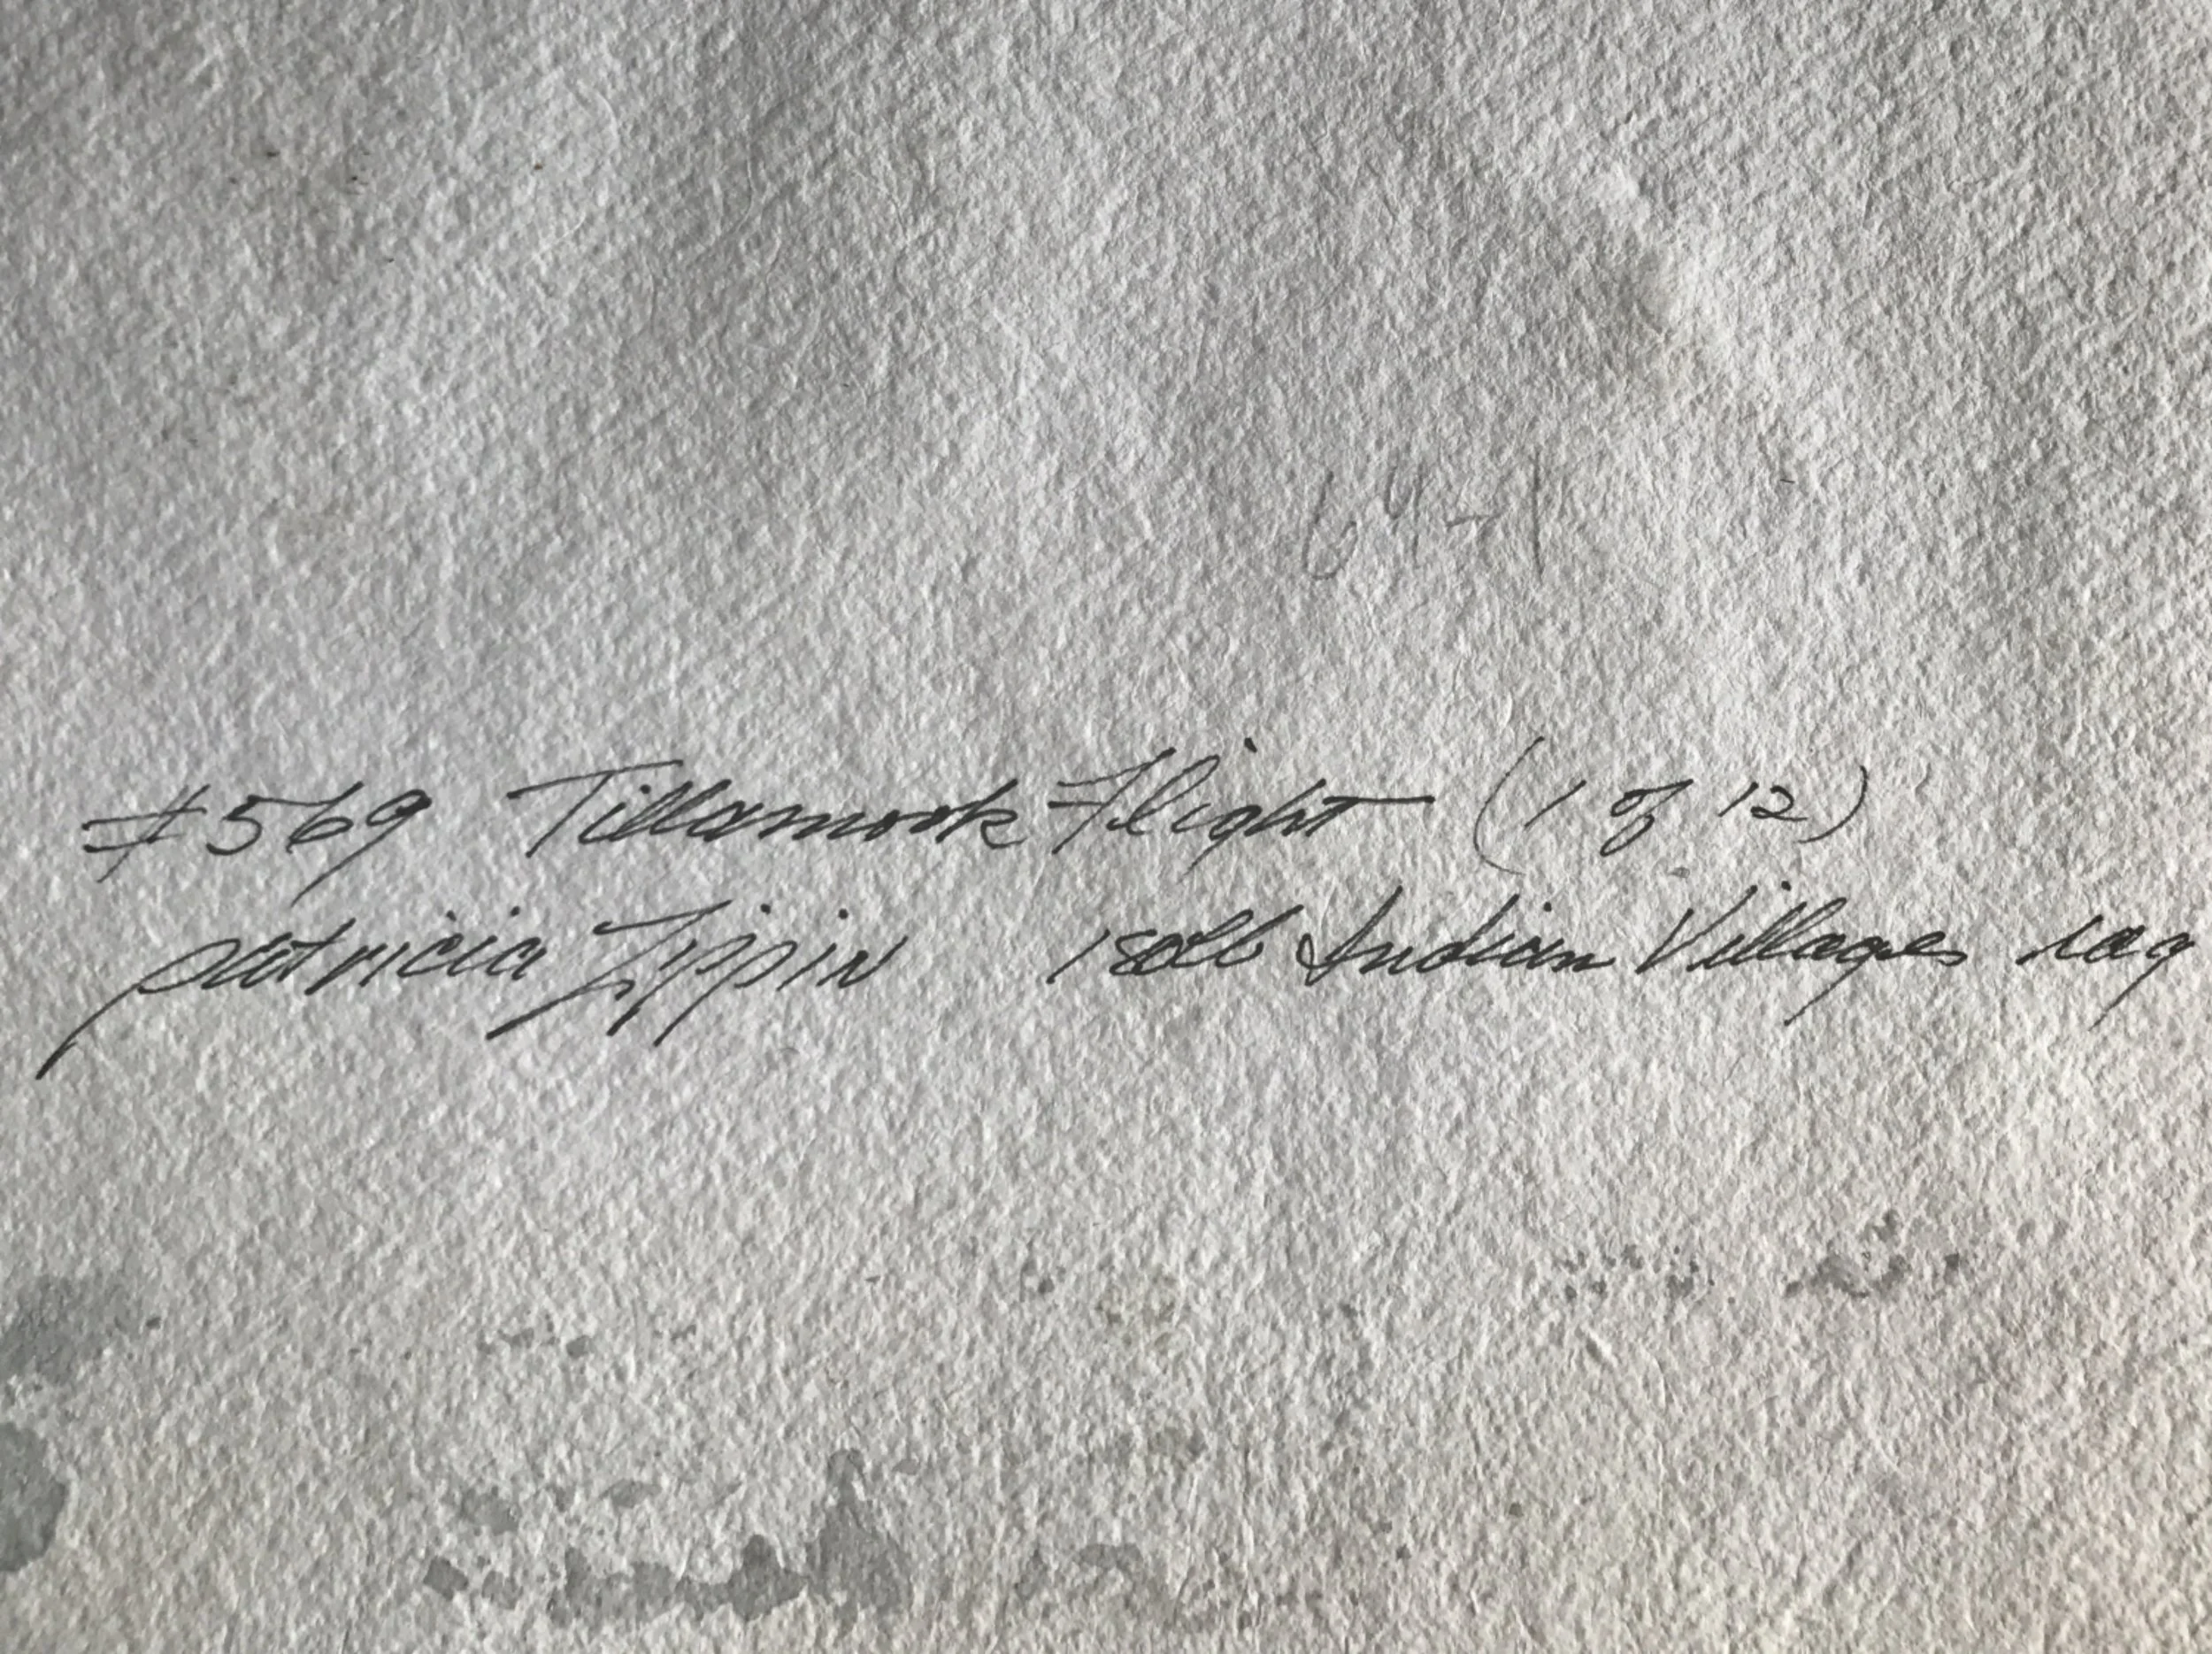 64-1
#569 Tillamook Flight (1 of 12)
patricia Zippin 180lb Indian Villages rag